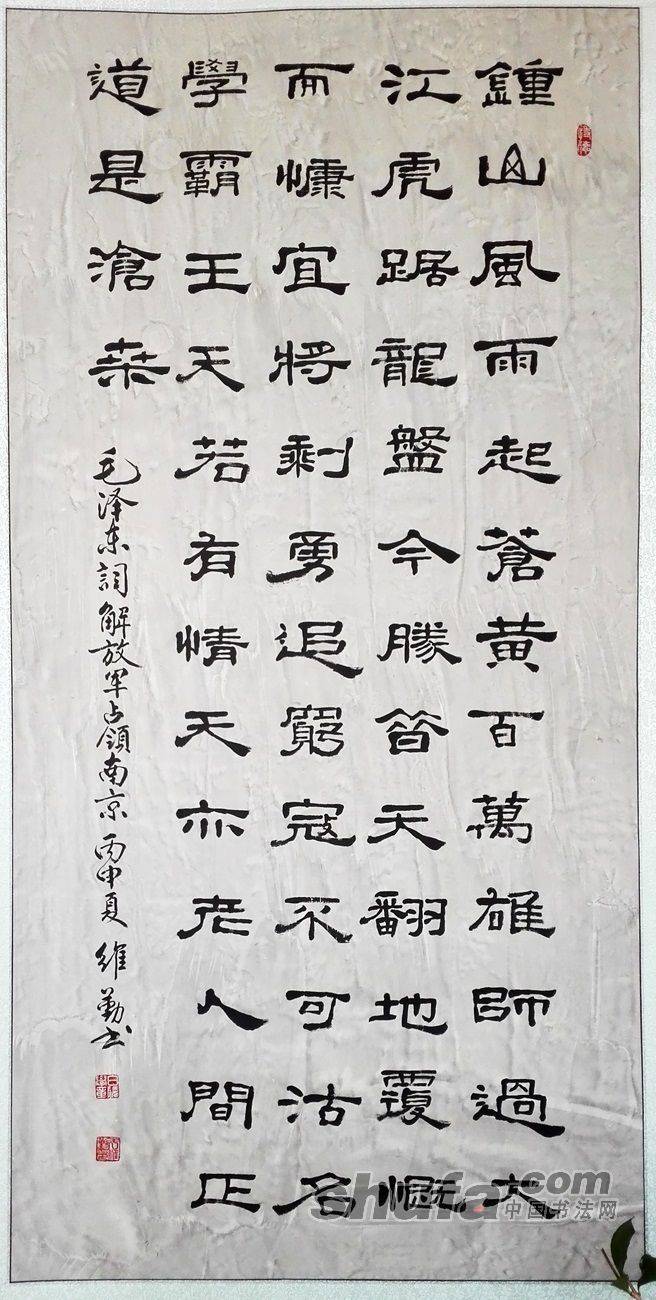 鍾山風雨起蒼黃百萬雄師過大
江虎踞龍盤今勝昔天翻地覆慨
而慷宜將剩勇追窮寇不可沽名
學霸王天若有情天亦老人間正
道是滄桑
毛泽东詞解放军占領南京 丙申夏 維勤书
shufa.com
中国书法网